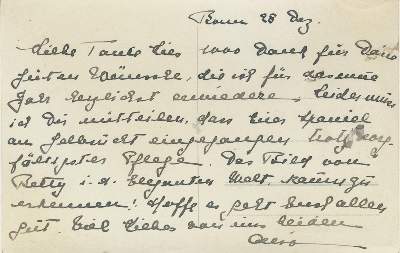 Bonn 28 Dez.
Liebe Tante Lies 1000 Dank für Deine
guten Wünsche, die ich für das neue
Jahr herzlichst erwiedere. Leider muss
ich Dir mitteilen, dass
an Gelbsucht eingegangen trotz sorg-
fältigster Pflege. Das Bild von
Betty i. d. Eleganten Welt, kaum zu
erkennen! Hoffe es geht Euch allen
gut. Viel Liebes von uns beiden